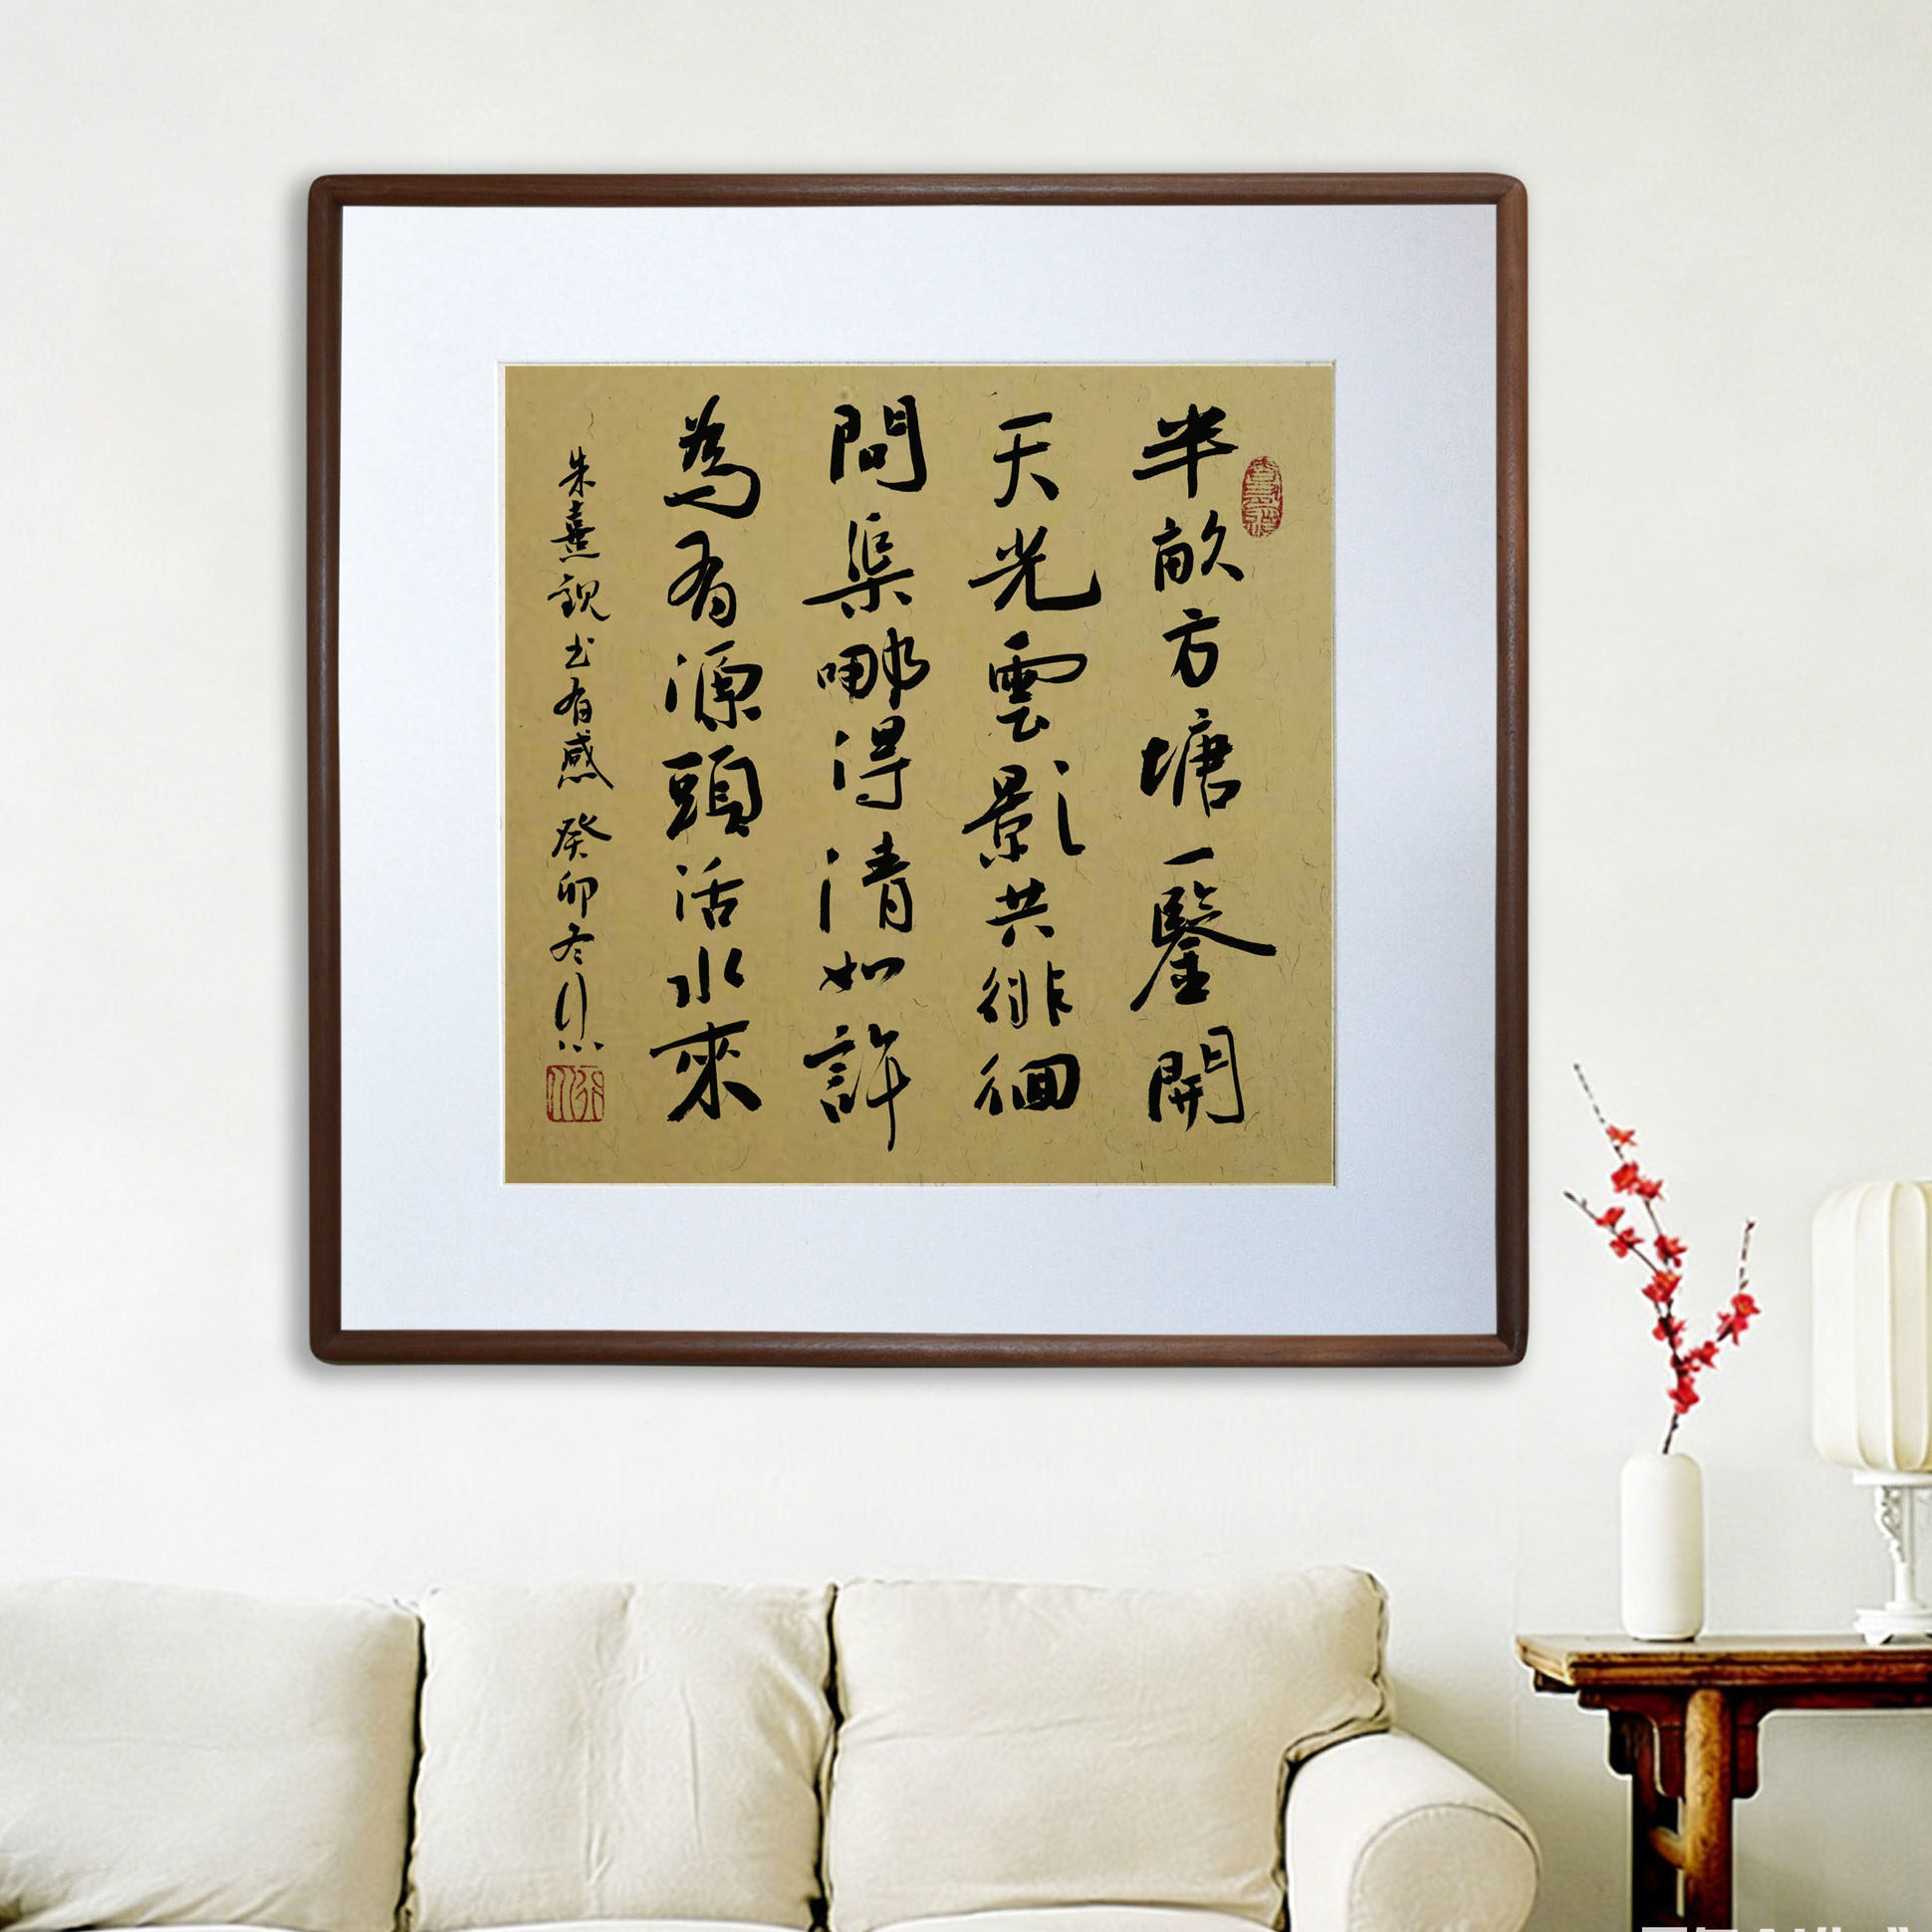 半畝方塘一鑒開
天光雲影共徘徊
問渠哪得清如許
為有源頭活水來
朱熹观书有感 癸卯冬月